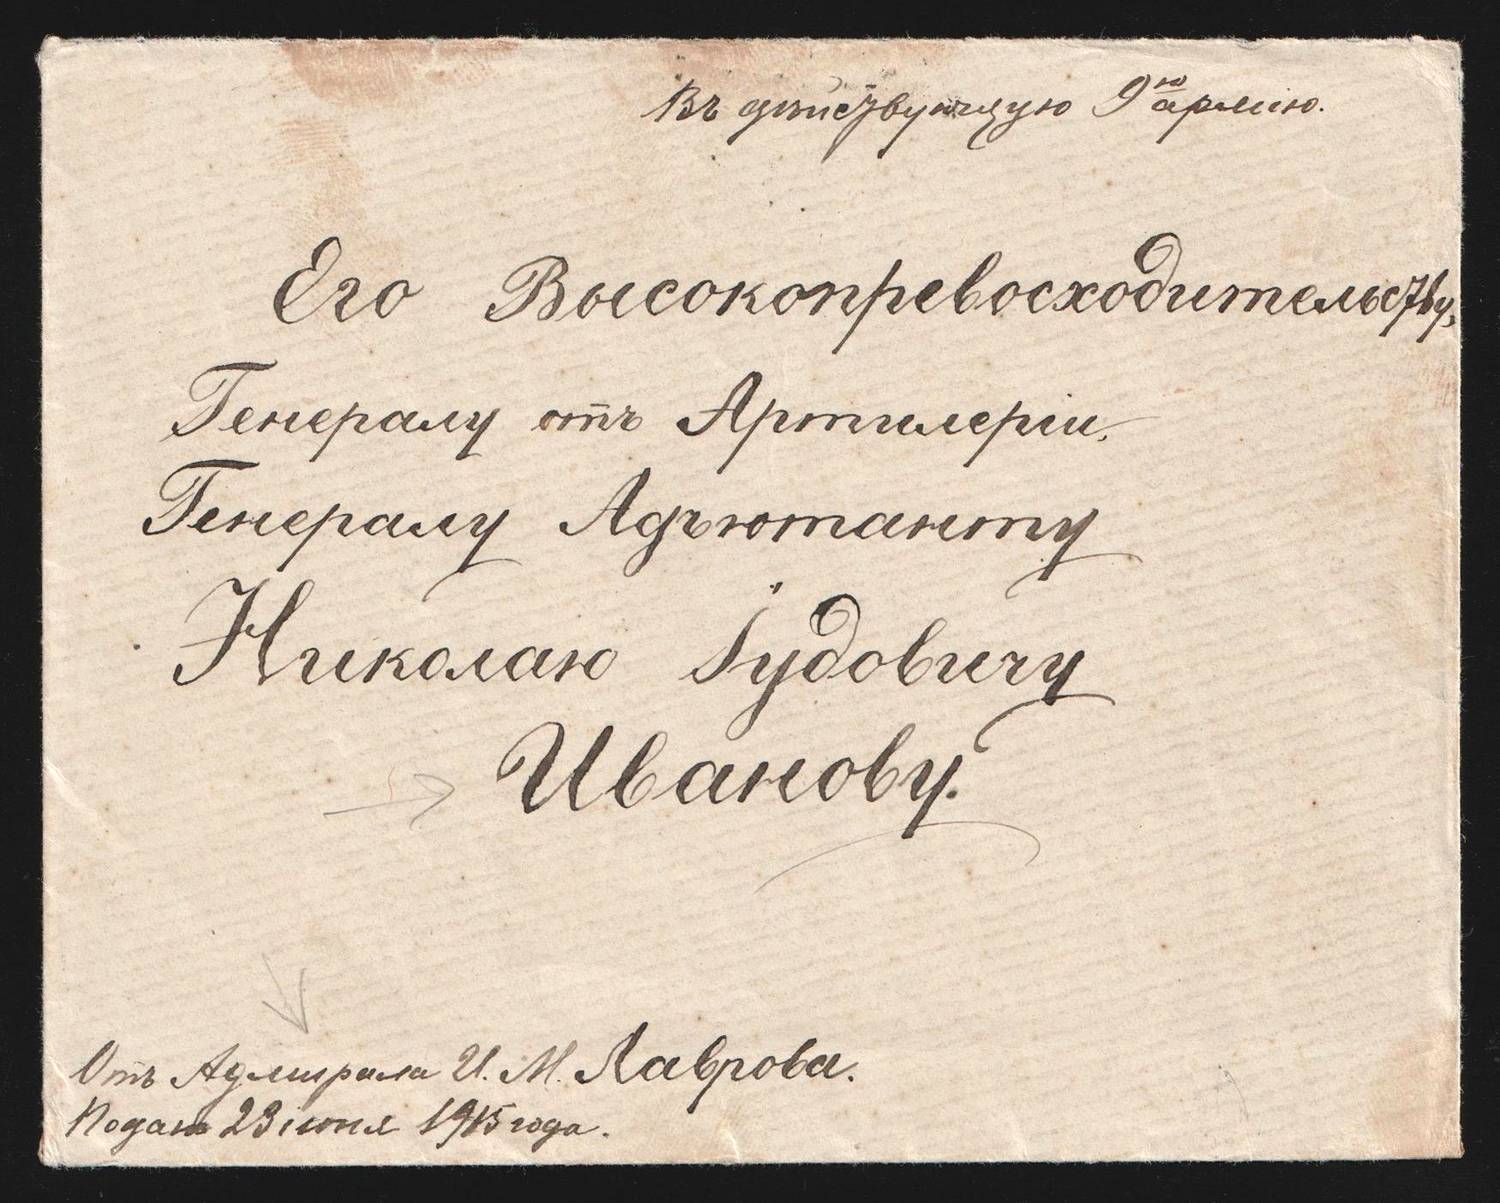 Въ дѣйствующую 9ю армію.
Его Высокопревосходительству,
Генералу отъ Артилеріи.
Генералу Адъютанту
Николаю Іудовичу
Иванову.
Отъ Адмирала И. М. Лаврова.
Подано 23 іюня 1915 года.